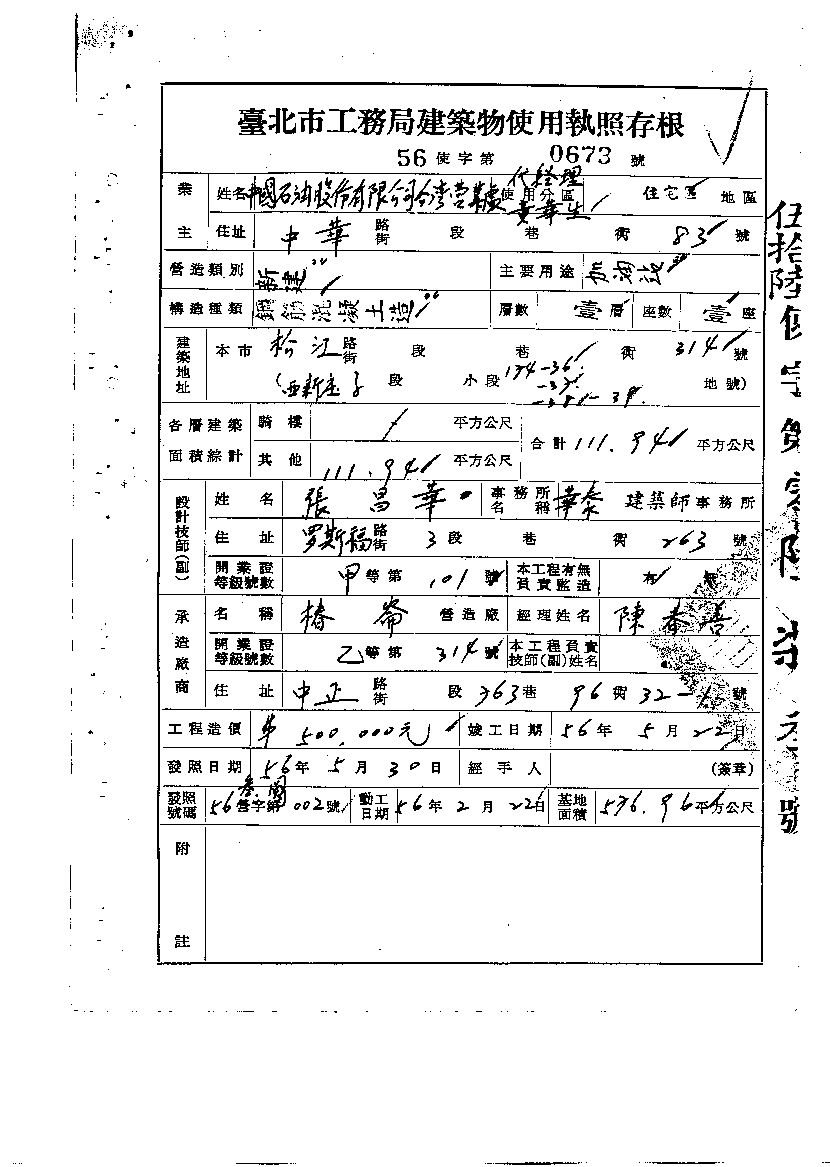 臺北市工務局建築物使用執照存根
56 使字第 0673 號
業主 姓名 中國石油股份有限公司台灣營業處 代經理 黃華生 使用分區 住宅區 地區
住址 中華 路街 段 巷 衖 83 號
營造類別 新建 主要用途 加油站
構造種類 鋼筋混凝土造 層數 壹層 座數 壹座
建築地址 本市 松江 路街 段 巷 衖 314 號
(西新庄子 段 小段 174-36 地號)
各層建築面積綜計 騎樓 平方公尺 合計 111.94 平方公尺
其他 111.94 平方公尺
設計技師(副) 姓名 張昌華 事務所名稱 華泰 建築師事務所
住址 罗斯福 路街 3段 巷 衖 263 號
開業證等級號數 甲等第 101 號 本工程有無負責監造 有 無
承造廠商 名稱 椿崙 營造廠 經理姓名 陳春善
開業證等級號數 乙等第 314 號 本工程負責技師(副)姓名
住址 中正 路街 段 363巷 96衖 32 號
工程造價 500,000元 竣工日期 56年 5月 22日
發照日期 56年 5月 30日 經手人 (簽章)
發照號碼 56營字第 002號 動工日期 56年 2月 22日 基地面積 平方公尺
附註
伍拾陸使字第零陸柒叁號